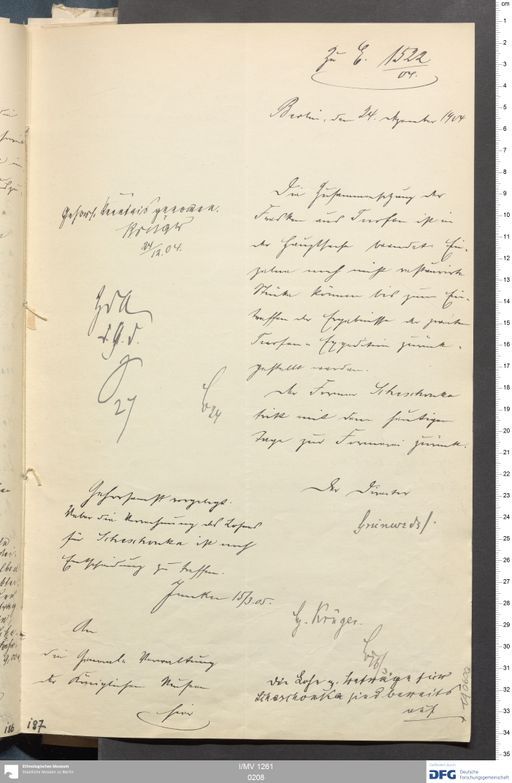 Zu E. 1522/04.
Berlin, den 24. Dezember 1904
Die Zusammensetzung der
Fresken aus Turfan ist in
der Hauptsache beendet. Ein-
zelne noch nicht restaurirte
Stücke können bis zum Ein-
treffen der Ergebnisse der zweiten
Turfan-Expedition zurück-
gestellt werden.
Der Former Scheschonka
tritt mit dem heutigen
Tage zur Formerei zurück.
Der Director
Grünwedel.
Gehors. Kenntnis genommen.
Krüger
24/12.04.
ZdA
27
Gehorsamst vorgelegt.
Ueber die Verrechnung des Lohnes
für Scheschonka ist noch
Entscheidung zu treffen.
15/3.05.
An
die General-Verwaltung
der Königlichen Museen
hier
Krüger.
Die Lohnbeträge für
Scheschonka sind bereits
187
186
I/MV 1261
0208
Ethnologisches Museum
Staatliche Museen zu Berlin
DFG
Deutsche
Forschungsgemeinschaft